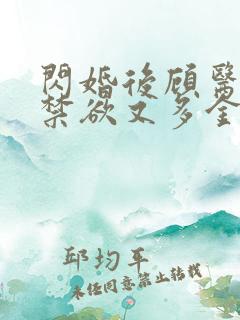 閃婚後顾醫
禁欲又多金
邱均平
未经同意禁止转载